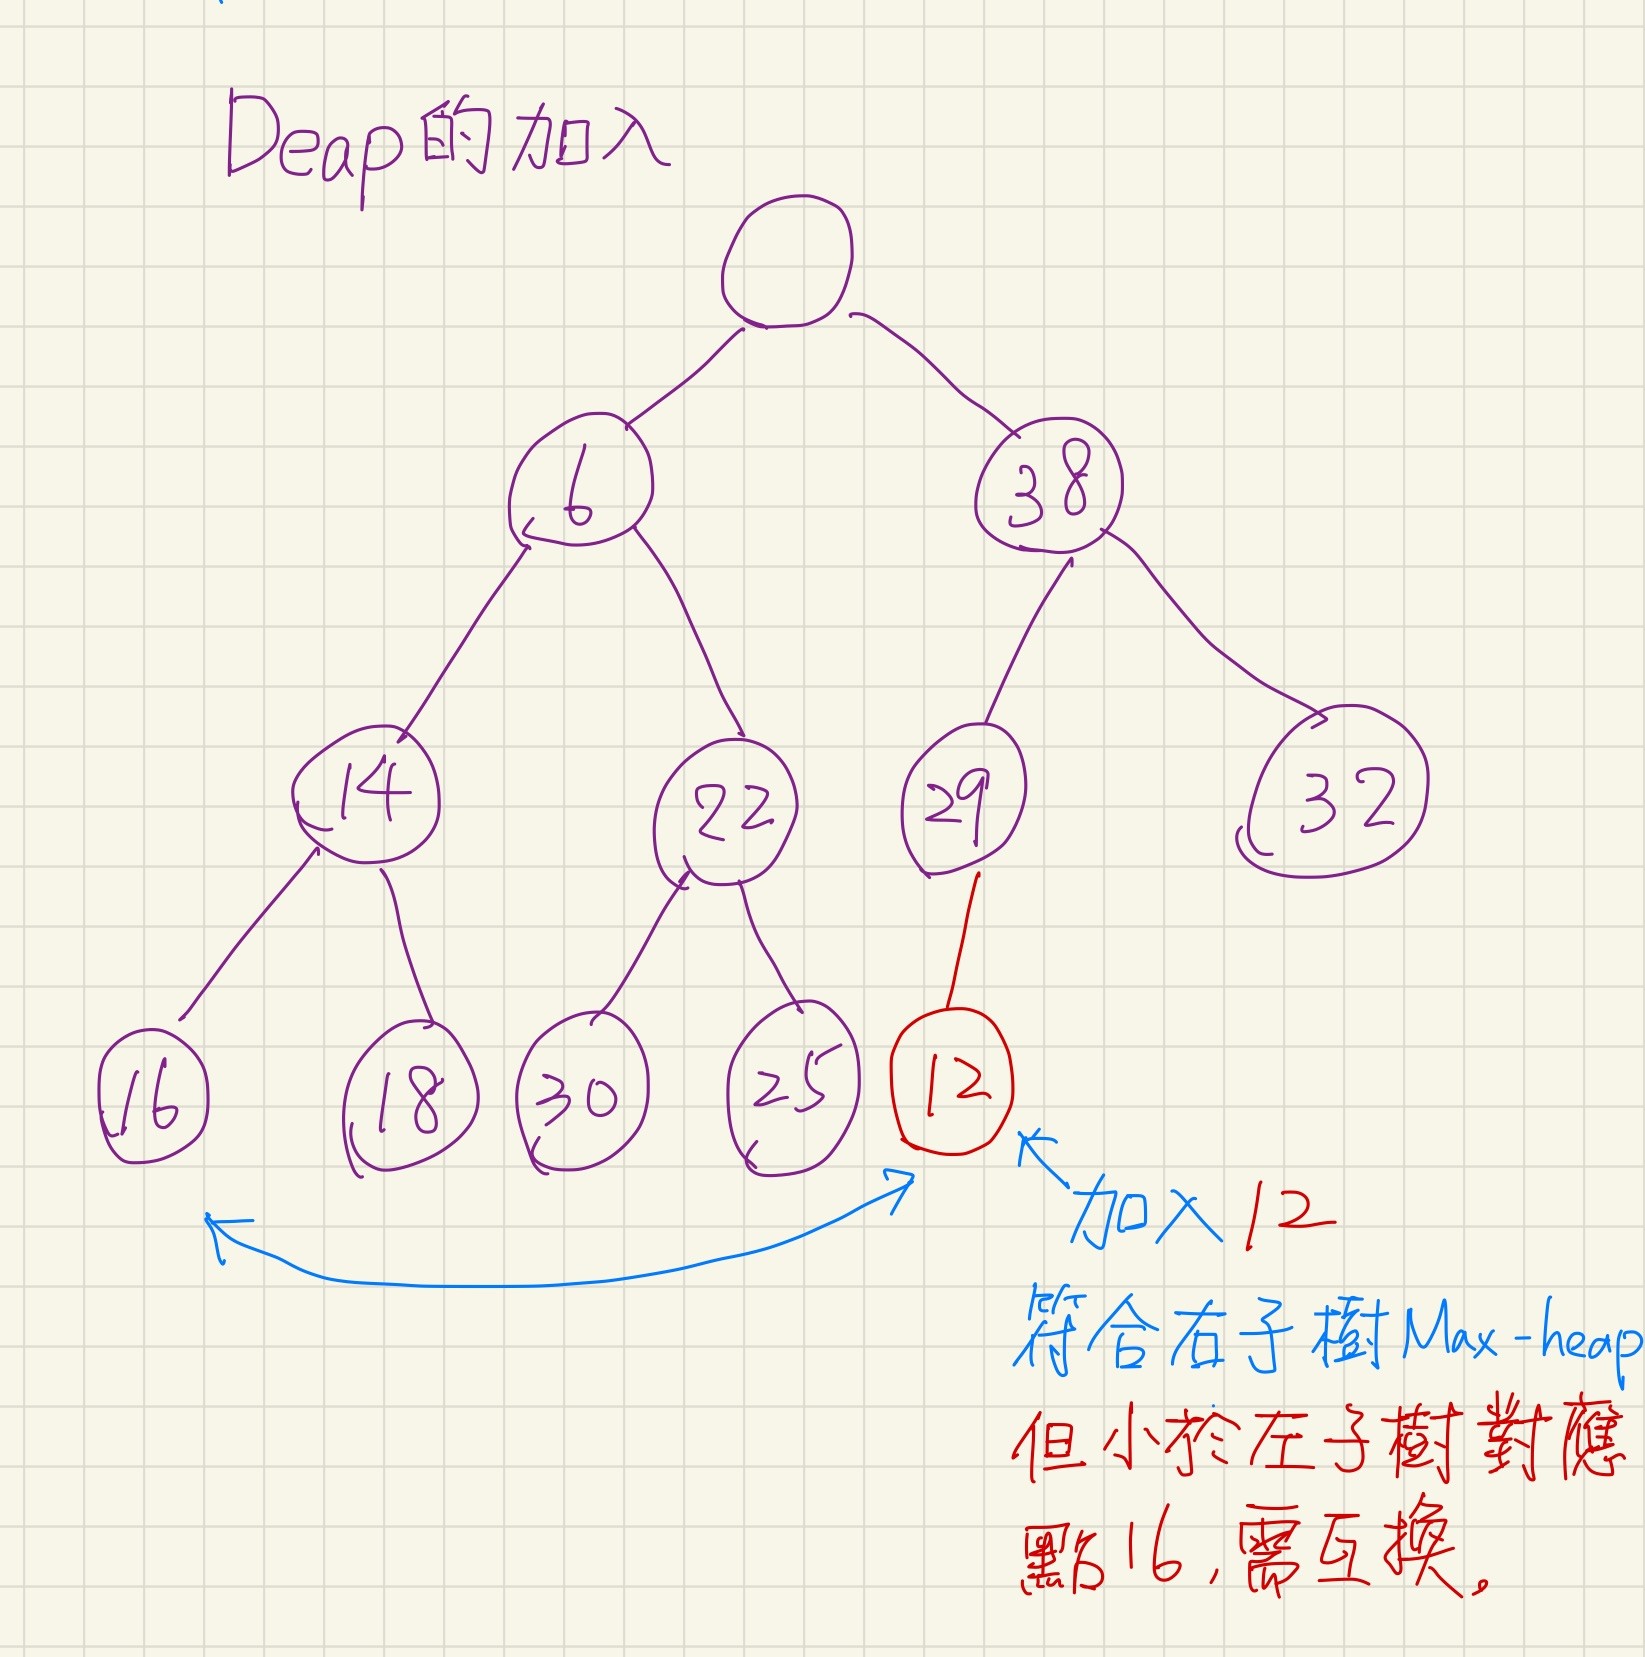 Deap的加入
6
38
14
22
29
32
16
18
30
25
12
加入12
符合右子樹Max-heap
但小於左子樹對應
點16,需互換。